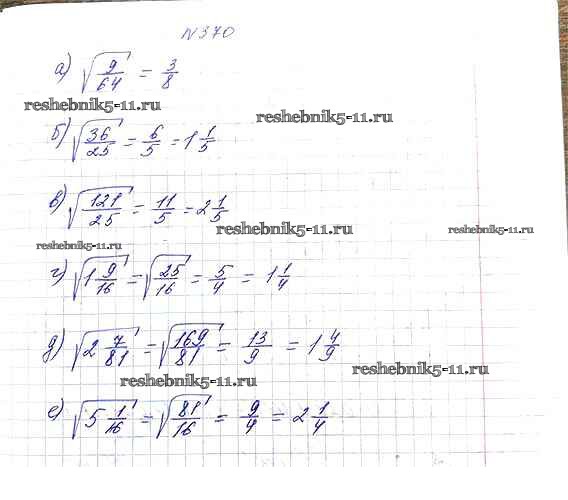 N370
а) √(9/64) = 3/8
reshebnik5-11.ru
reshebnik5-11.ru
б) √(36/25) = 6/5 = 1 1/5
в) √(121/25) = 11/5 = 2 1/5
reshebnik5-11.ru
reshebnik5-11.ru
reshebnik5-11.ru
г) √(1 9/16) = √(25/16) = 5/4 = 1 1/4
д) √(2 7/81) = √(169/81) = 13/9 = 1 4/9
reshebnik5-11.ru
reshebnik5-11.ru
е) √(5 1/16) = √(81/16) = 9/4 = 2 1/4